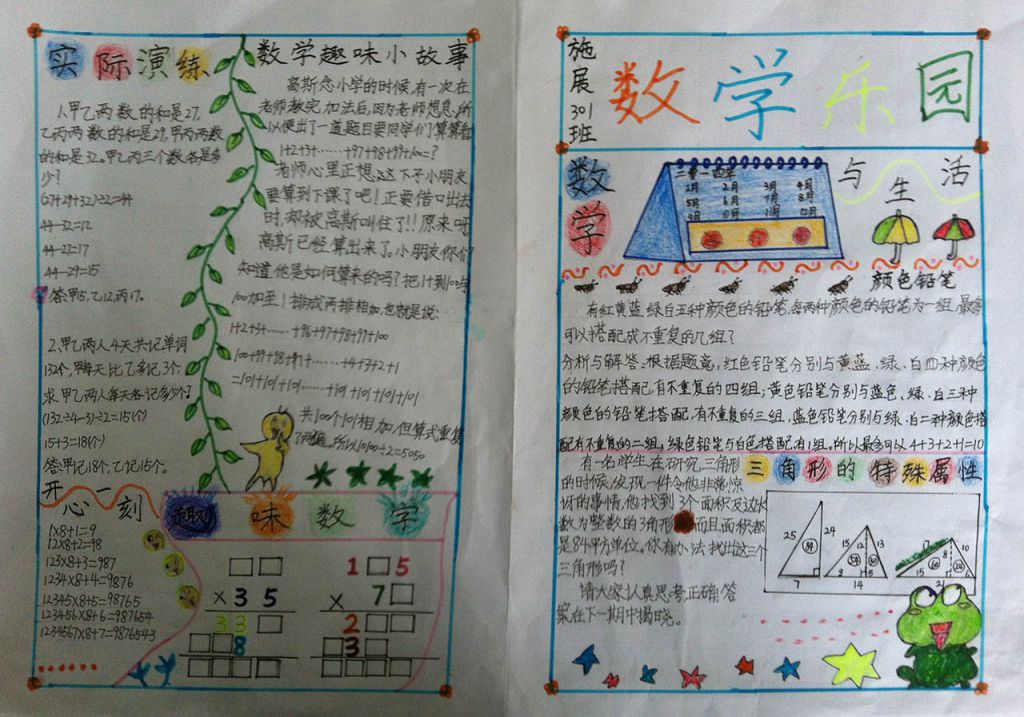 实际演练
1.甲乙两数的和是27,
乙丙两数的和是29,甲丙两数
的和是32。甲乙丙三个数各是多
少?
(27+29+32)÷2=44
44-32=12
44-27=17
44-29=15
答:甲5,乙12,丙17。
2.甲乙两人4天共记单词
132个,甲每天比乙多记3个,
求甲乙两人每天各记多少个?
(132÷4-3)÷2=15(个)
15+3=18(个)
答:甲记18个,乙记15个。
开心一刻
1×8+1=9
12×8+2=98
123×8+3=987
1234×8+4=9876
12345×8+5=98765
123456×8+6=987654
1234567×8+7=9876543
数学趣味小故事
高斯念小学的时候,有一次在
老师教完加法后,因为老师想息,所
以便出了一道题目要同学们算算看
1+2+3+……+97+98+99+100=?
老师心里正想,这下子小朋友
要算到下课了吧!正要借口出去
时,却被高斯叫住了!!原来呀
高斯已经算出来了。小朋友你们
知道他是如何算来的吗?把1到100与
100加至1排成两排相加,也就是说:
1+2+3+……+96+97+98+99+100
100+99+98+97+……+4+3+2+1
=101+101+101……+101+101+101+101
共100个101相加,但算式重复
了两遍,所以10100÷2=5050
趣味数学
□□
×35
33□
□□8
□□□□
1□5
×7□
2□□
□3□
□□□□
施展301班
数学乐园
数学与生活
二零一四年
1月 2月 3月 4月
5月 6月 7月 8月
9月 10月 11月 12月
颜色铅笔
有红黄蓝绿白五种颜色的铅笔,每两种颜色的铅笔为一组,最多
可以搭配成不重复的几组?
分析与解答:根据题意,红色铅笔分别与黄蓝、绿、白四种颜色
的铅笔搭配,有不重复的四组;黄色铅笔分别与蓝色、绿、白三种
颜色的铅笔搭配,有不重复的三组,蓝色铅笔分别与绿、白二种颜色搭
配有不重复的二组,绿色铅笔与白色搭配,有1组。所以最多可以4+3+2+1=10
三角形的特殊属性
有一名学生在研究三角形
的时候,发现一件令他非常惊
讶的事情,他找到3个面积及边长
数为整数的3角形,而且面积都
是84平方单位。你有办法找出这三个
三角形吗?
请大家认真思考,正确答
案在下一期中揭晓。
25 24 84 7
15 12 13 9 5 14
17 10 8 15 6 21